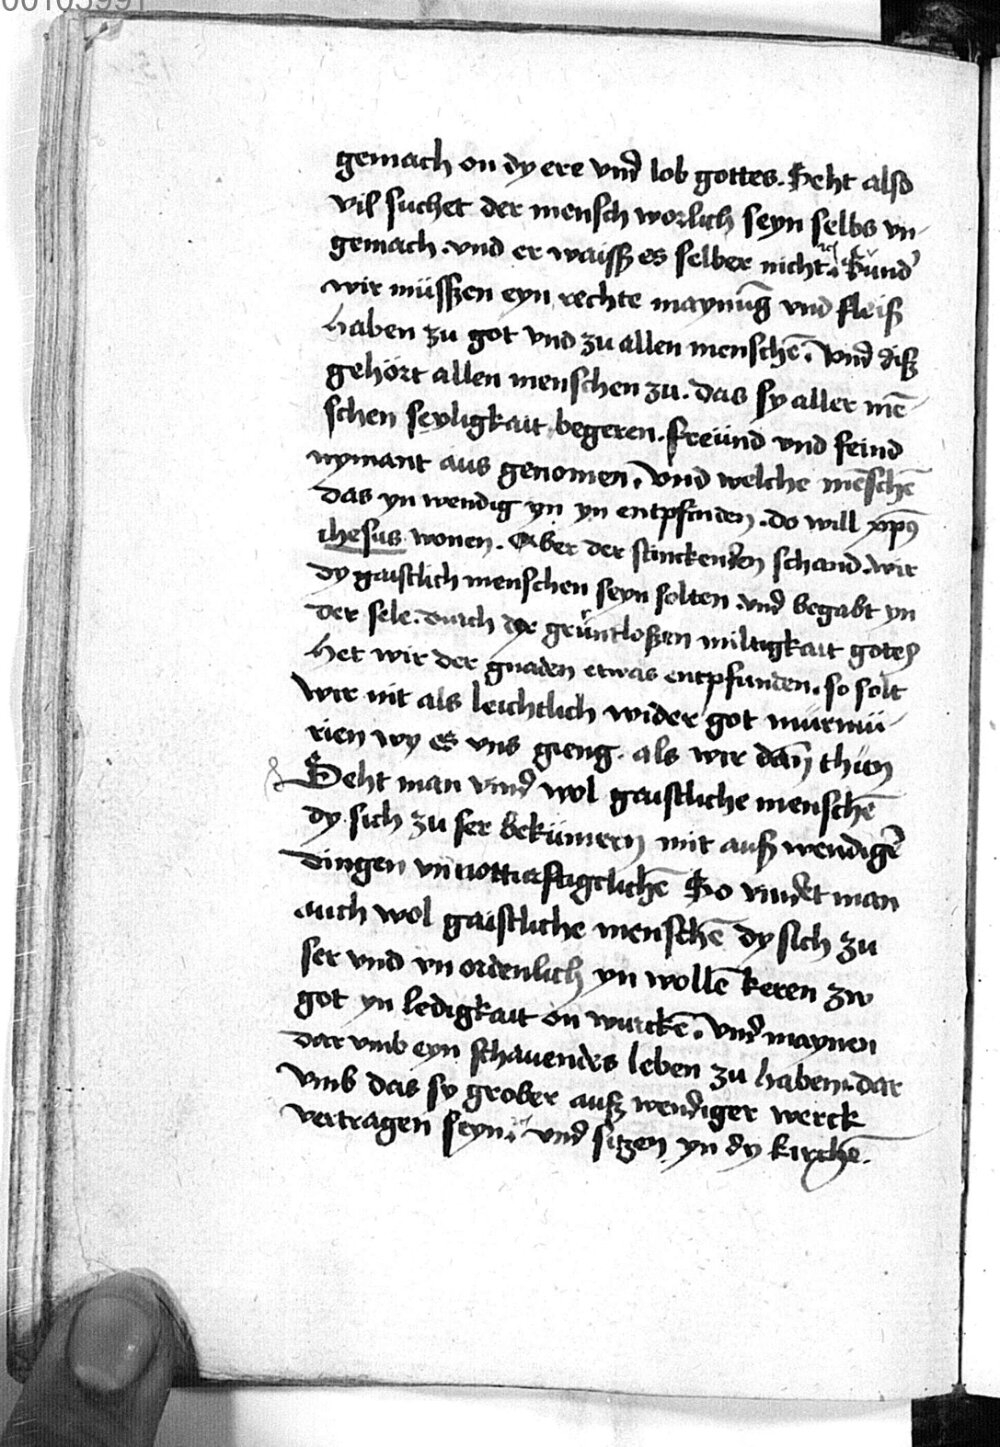 00105991
gemach on dy ere vnd lob gottes. Seht also
vil suchet der mensch worlich seyn selbs vn
gemach. vnd er waiss es selber nicht.
wir müssen eyn rechte maynūg vnd fleiß
haben zu got vnd zu allen menschē. vnd diß
gehört allen menschen zu. das sy aller mē
schen seyligkait begeren. freünd vnd feind
nymant aus genomen. vnd welche mēschē
das yn wendig yn yn entpfinden. do will xp̄s
ihesus wonen. Aber der stinckenden schand. wir
dy gaistlich menschen seyn solten. vnd begabt yn
der sele. durch dye grüntloßen miltigkait gotes
het wir der gnaden etwas entpfunden. so solt
wir nit als leichtlich wider got murmü
rien wy es vns gieng. als wir dan̄ thün
Seht man vind wol gaistliche menschē
dy sich zu ser bekümern mit auß wendigē
dingen vn̄ So vindet man
auch wol gaistliche menschē dy sich zu
ser vnd vn ordenlich yn wollē keren zw
got yn ledigkait on wurckē. vnd maynen
dar vmb eyn schauendes leben zu haben. dar
vmb das sy grober auß wendiger werck
vertragen seyn. vnd sitzen yn dy kirchē.